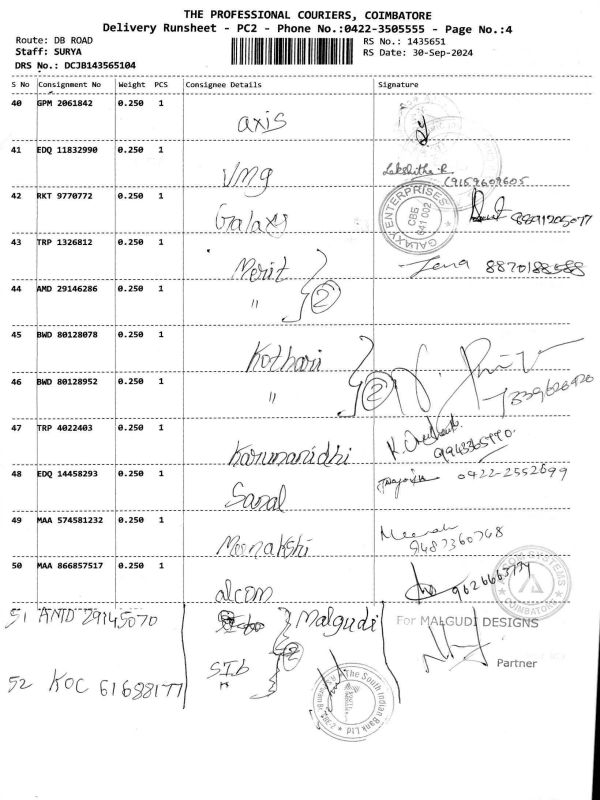 THE PROFESSIONAL COURIERS, COIMBATORE
Delivery Runsheet - PC2 - Phone No.:0422-3505555 - Page No.:4
Route: DB ROAD
RS No.: 1435651
Staff: SURYA
RS Date: 30-Sep-2024
DRS No.: DCJB143565104
S No Consignment No Weight PCS Consignee Details Signature
40 GPM 2061842 0.250 1 axis
41 EDQ 11832990 0.250 1 Vmg Lakshitha R
9159609605
42 RKT 9770772 0.250 1 Galaxy
GALAXY ENTERPRISES
CBE
641 002
43 TRP 1326812 0.250 1 Merit
44 AMD 29146286 0.250 1 " 2
45 BWD 80128078 0.250 1 Kothari
46 BWD 80128952 0.250 1 " 2
47 TRP 4022403 0.250 1 Karunanidhi
48 EDQ 14458293 0.250 1 Saral 0422-2552699
49 MAA 574581232 0.250 1 Meenakshi Meenah
9487360748
50 MAA 866857517 0.250 1 alcom
COIMBATORE
51 AMD 29145070 Malgudi
For MALGUDI DESIGNS
SIb 2
Partner
52 KOC 61688177 "
The South Indian Bank Ltd